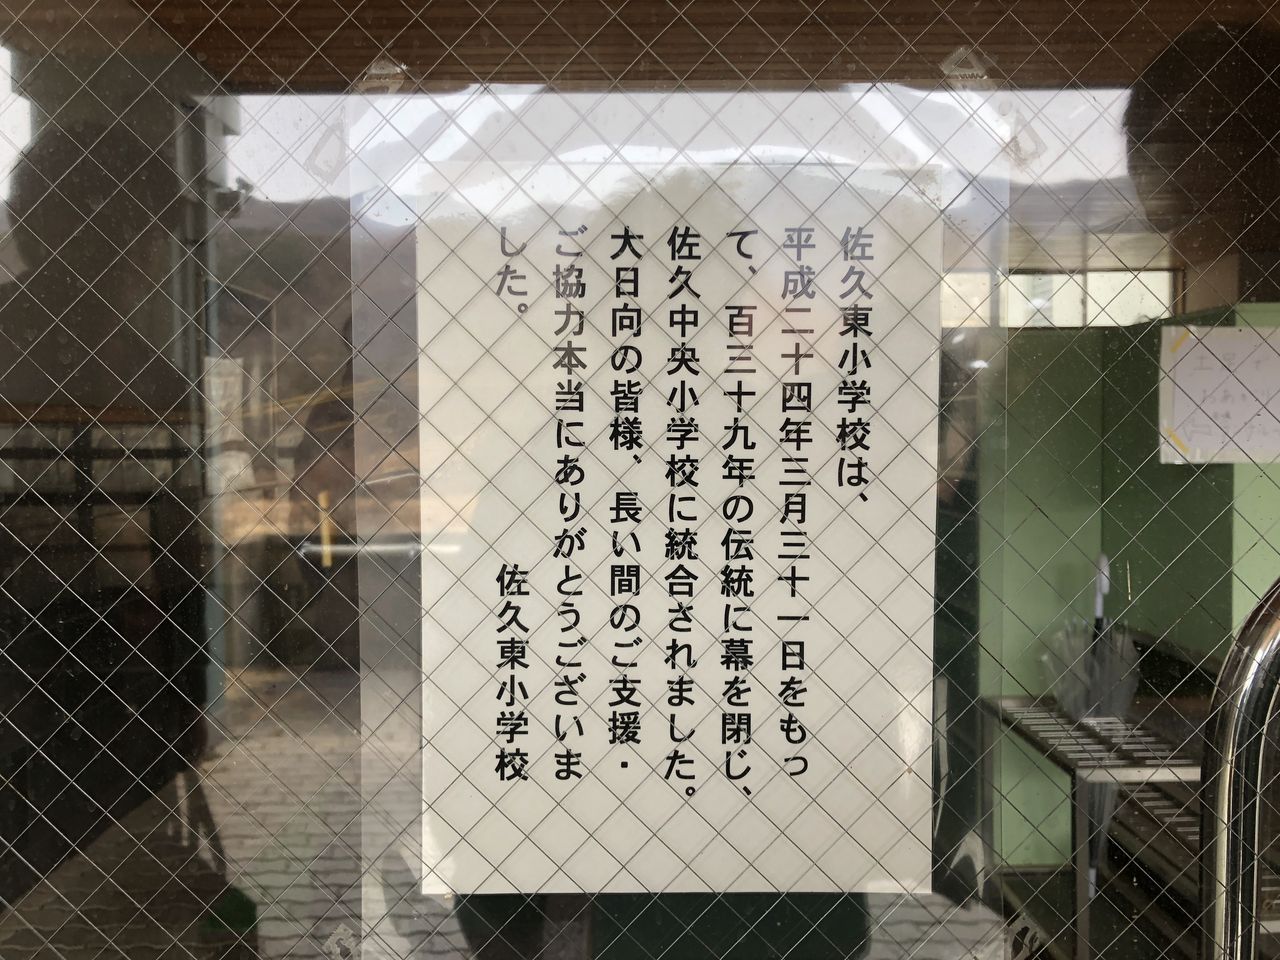 佐久東小学校は、
平成二十四年三月三十一日をもっ
て、百三十九年の伝統に幕を閉じ、
佐久中央小学校に統合されました。
大日向の皆様、長い間のご支援・
ご協力本当にありがとうございま
した。
佐久東小学校